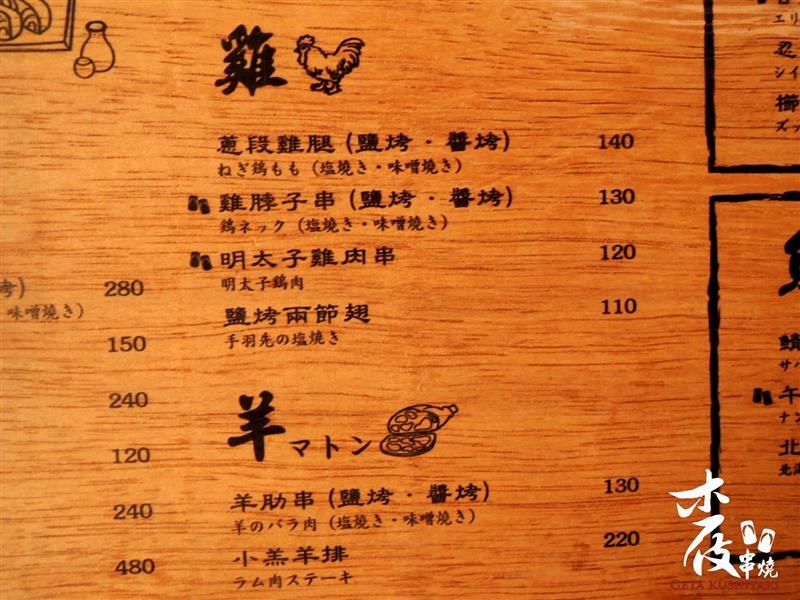 雞
蔥段雞腿（鹽烤．醬烤） 140
ねぎ鶏もも（塩焼き・味噌焼き）
雞脖子串（鹽烤．醬烤） 130
鶏ネック（塩焼き・味噌焼き）
明太子雞肉串 120
明太子鶏肉
鹽烤兩節翅 110
手羽先の塩焼き
羊 マトン
羊肋串（鹽烤．醬烤） 130
羊のバラ肉（塩焼き・味噌焼き）
小羔羊排 220
ラム肉ステーキ
烤） 280
味噌焼き）
150
240
120
240
480
エリ
忍
シイ
櫛
ズッ
鯖
サバ
午
ナン
北
北海
木屐串燒
GETA KUSHIYAKI